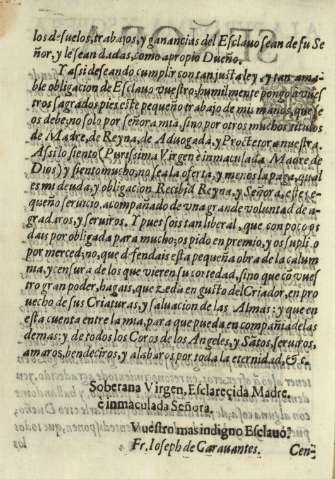 los desuelos, trabajos, y ganancias del Esclauo sean de su Se
ñor, y le sean dadas, como a propio Dueño.
Y assi deseando cumplir con tan justa ley, y tan ama-
ble obligacion de Esclauo vuestro: humilmente pongo à vues
tros sagrados pies este pequeño trabajo de mis manos, que se
os debe, no solo por señora mia, sino por otros muchos titulos
de Madre, de Reyna, de Aduogada, y Proctetora nuestra.
Assi lo siento (Purissima Virgen è inmaculada Madre de
Dios) y siento mucho, no sea la oferta, y menos la paga, qual
es mi deuda, y obligacion. Recibid Reyna, y Señora, este pe-
queño seruicio, acompañado de vna grande voluntad de a-
gradaros, y seruiros. Y pues sois tan liberal, que con poco os
dais por obligada para mucho; os pido en premio, y os suplico
por merced; no, que defendais esta pequeña obra de la calum
nia, y censura de los que vieren su cortedad, sino que cõ vues
tro gran poder, hagais, que zeda en gusto del Criador, en pro
uecho de sus Criaturas, y saluacion de las Almas: y que en
esta cuenta entre la mia, para que pueda en compañia de las
demas: y de todos los Coros de los Angeles, y Sãtos, seruiros,
amaros, bendeciros, y alabaros por toda la eternidad, &c.
Soberana Virgen, Esclarecida Madre,
è inmaculada Señora.
Vuestro mas indigno Esclauo.
Fr. Ioseph de Carauantes.
Cen-